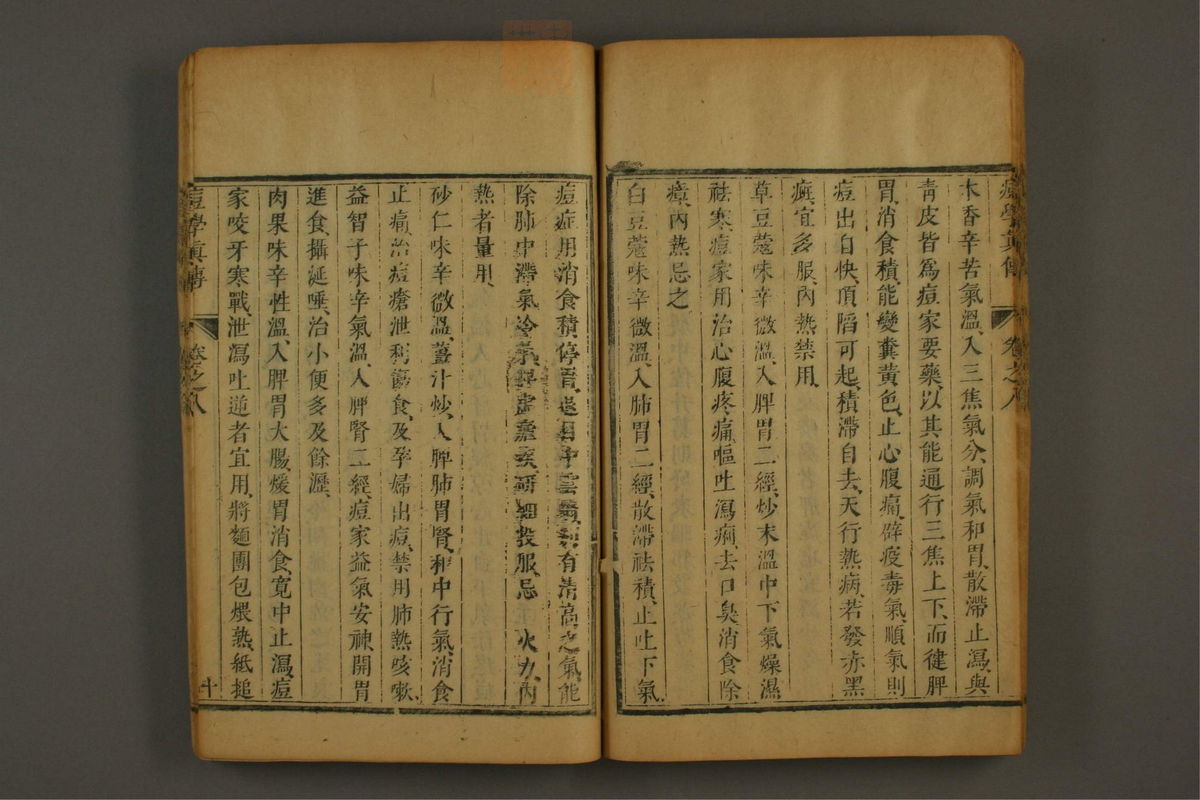 痘學真傳 卷之八
木香辛苦氣溫、入三焦氣分、調氣和胃、散滯止瀉、與
青皮皆爲痘家要藥、以其能通行三焦上下、而健脾
胃、消食積、能變糞黃色、止心腹痛、辟疫毒氣、順氣則
痘出自快、頂陷可起、積滯自去、天行熱病、若發赤黑
癍、宜多服、內熱禁用、
草豆蔻味辛微溫、入脾胃二經、炒末溫中下氣燥濕
祛寒、痘家用治心腹疼痛、嘔吐瀉痢、去口臭消食除
瘴、內熱忌之、
白豆蔻味辛微溫、入肺胃二經、散滯祛積、止吐下氣
痘症用消食積停胃、有清高之氣能
除肺中滯氣冷細投服、忌火力、內
熱者量用、
砂仁味辛微溫、薑汁炒、入脾肺胃腎、和中行氣、消食
止痛、治痘瘡泄利傷食、及孕婦出痘、禁用肺熱咳嗽、
益智子味辛氣溫、入脾腎二經、痘家益氣安神、開胃
進食、攝涎唾、治小便多及餘瀝、
肉果味辛性溫、入脾胃大腸、煖胃消食、寬中止瀉、痘
家咬牙寒戰、泄瀉吐逆者宜用、將麵團包煨熟、紙搥
痘學真傳 卷之八 十